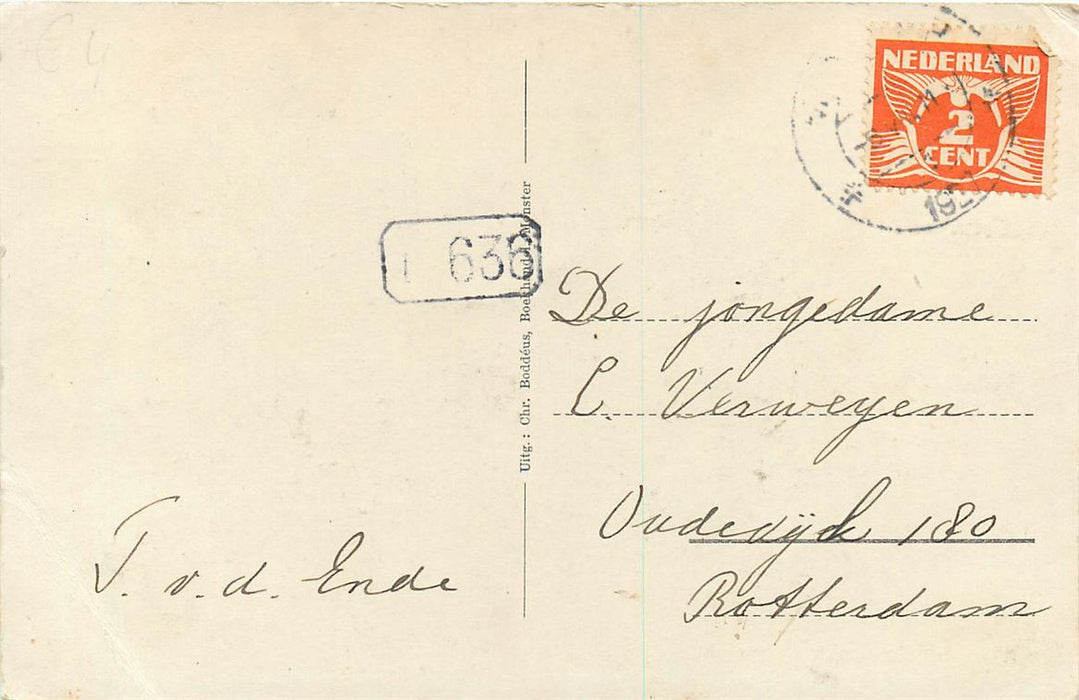 € 4
NEDERLAND
2
CENT
636
Uitg.: Chr. Boddéus, Boekhandel, Monster
De jongedame
C. Verweyen
Oudedijk 180
Rotterdam
T. v. d. Ende